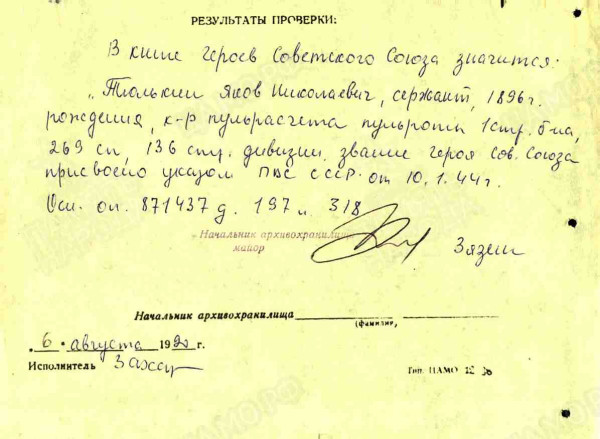 РЕЗУЛЬТАТЫ ПРОВЕРКИ:
В книге героев Советского Союза значится:
„Тюлькин Яков Николаевич, сержант, 1896 г.
рождения, к-р пульрасчета пульроты 1 стр. б-на,
269 сп, 136 стр. дивизии, звание героя Сов. Союза
присвоено указом ПВС СССР от 10.1.44 г.
Осн. оп. 871437 д. 197 л. 318
Начальник архивохранилища
майор
Зязин
Начальник архивохранилища
(фамилия,
„6" августа 1990 г.
Исполнитель
Тип. ЦАМО